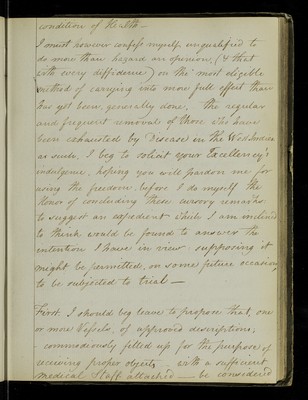 condition of Health —
I must however confess myself unqualified to
do more than hazard an opinion, (& that
with every diffidence) on the most eligible
method of carrying into more full effect than
has yet been generally done, the regular
and frequent removal of those who have
been exhausted by Disease in the West Indies
as such, I beg to solicit your Excellency's
indulgence, hoping you will pardon me for
using the freedom, before I do myself the
Honor of concluding these cursory remarks
to suggest an expedient which I am inclined
to think would be found to answer the
intention I have in view: supposing it
might be permitted, on some future occasion,
to be subjected to trial —
First. I should beg leave to propose that, one
or more Vessels, of approved descriptions,
commodiously fitted up for the purpose of
receiving proper objects — with a sufficient
medical Staff attached — be considered